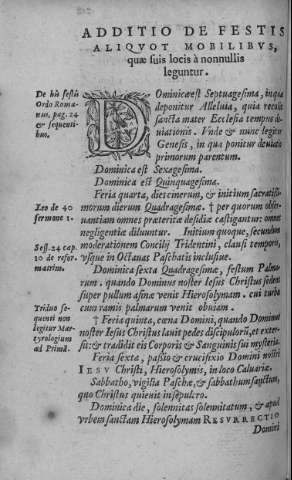 ADDITIO DE FESTIS
ALIQVOT MOBILIBVS,
quæ suis locis à nonnullis
leguntur.
De his festis
Ordo Roma-
nus, pag. 24
& sequenti-
bus.
DOminica est Septuagesima, in qua
deponitur Alleluia, quia recolit
sancta mater Ecclesia tempus de-
uiationis. Vnde & nunc legitur
Genesis, in qua ponitur deuiatio
primorum parentum.
Dominica est Sexagesima.
Dominica est Quinquagesima.
Feria quarta, dies cinerum, & initium sacratissi-
Leo de 40
sermone 1.
morum dierum Quadragesimæ. † per quorum obser-
uantiam omnes præteritæ desidiæ castigantur: omnes
negligentiæ diluuntur. Initium quoque, secundum
Sess. 24 cap.
10 de refor.
matrim.
moderationem Concilij Tridentini, clausi temporis,
vsque in Octauas Paschatis inclusiue.
Dominica sexta Quadragesimæ, festum Palma-
rum. quando Dominus noster Iesus Christus sedens
super pullum asinæ venit Hierosolymam. cui turbæ
cum ramis palmarum venit obuiam.
Triduo se-
quenti non
legitur Mar-
tyrologium
ad Primã.
† Feria quinta, cœna Domini, quando Dominus
noster Iesus Christus lauit pedes discipulorũ, et exter-
sit: & tradidit eis Corporis & Sanguinis sui mysteria.
Feria sexta, passio & crucifixio Domini nostri
IESV Christi, Hierosolymis, in loco Caluariæ.
Sabbatho, vigilia Paschæ, & sabbathum sanctum,
quo Christus quieuit in sepulcro.
Dominica die, solemnitas solemnitatum, & apud
vrbem sanctam Hierosolymam RESVRRECTIO
Domini